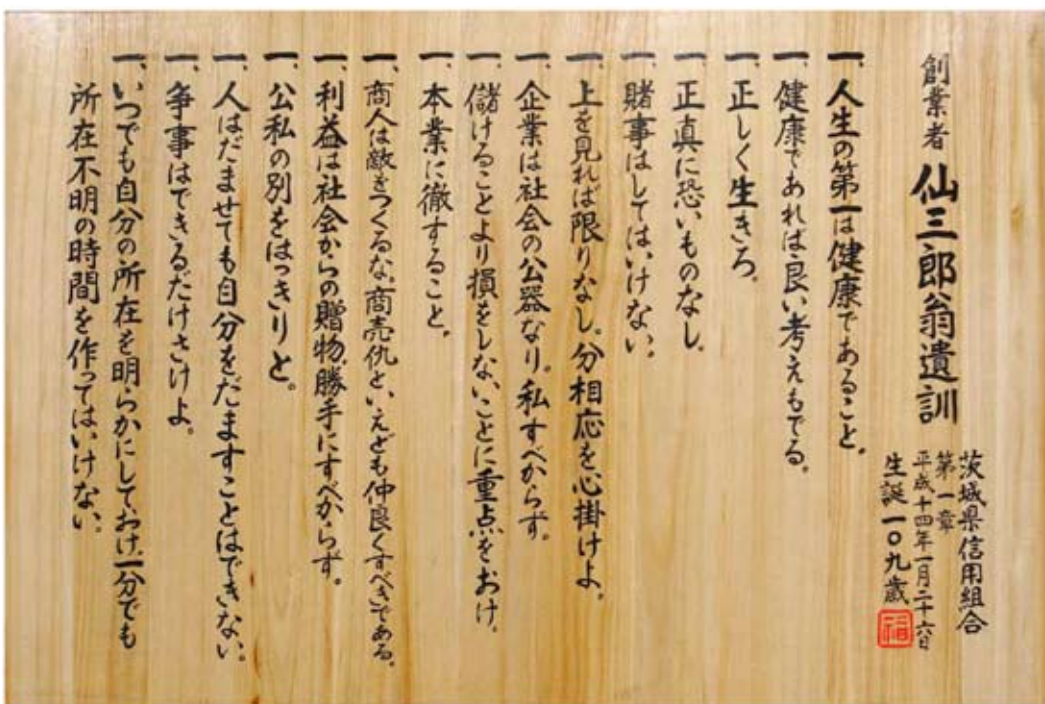 創業者 仙三郎翁遺訓
茨城県信用組合
第一章
平成十四年一月二十六日
生誕一〇九歳
福
一、人生の第一は健康であること。
一、健康であれば良い考えもでる。
一、正しく生きろ。
一、正真に恐いものなし。
一、賭事はしてはいけない。
一、上を見れば限りなし。分相応を心掛けよ。
一、企業は社会の公器なり。私すべからず。
一、儲けることより損をしないことに重点をおけ。
一、本業に徹すること。
一、商人は敵をつくるな。商売仇といえども仲良くすべきである。
一、利益は社会からの贈物、勝手にすべからず。
一、公私の別をはっきりと。
一、人はだませても自分をだますことはできない。
一、争事はできるだけさけよ。
一、いつでも自分の所在を明らかにしておけ、一分でも
所在不明の時間を作ってはいけない。